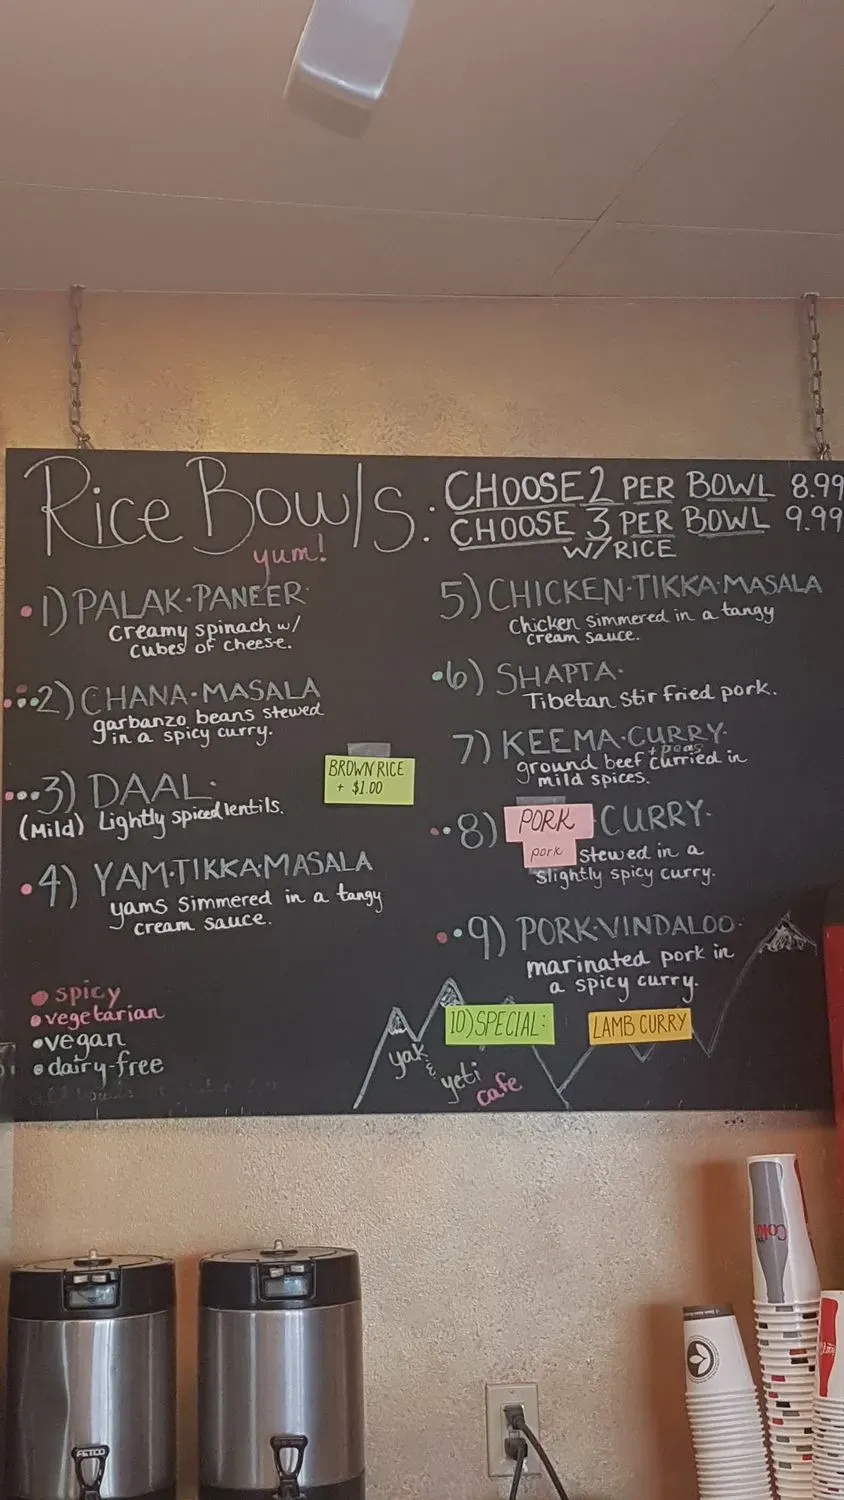 Rice Bowls:
yum!
CHOOSE 2 PER BOWL 8.99
CHOOSE 3 PER BOWL 9.99
W/ RICE
1) PALAK·PANEER·
Creamy spinach w/
cubes of cheese.
2) CHANA·MASALA
garbanzo beans stewed
in a spicy curry.
3) DAAL·
(Mild) Lightly spiced lentils.
4) YAM·TIKKA·MASALA
yams simmered in a tangy
cream sauce.
BROWN RICE
+ $1.00
5) CHICKEN·TIKKA·MASALA
Chicken simmered in a tangy
cream sauce.
6) SHAPTA·
Tibetan stir fried pork.
7) KEEMA·CURRY·
ground beef + peas curried in
mild spices.
8) PORK CURRY·
pork stewed in a
slightly spicy curry.
9) PORK·VINDALOO·
marinated pork in
a spicy curry.
10) SPECIAL: LAMB CURRY
spicy
vegetarian
vegan
dairy-free
yak
&
yeti
cafe
FETCO
Coke